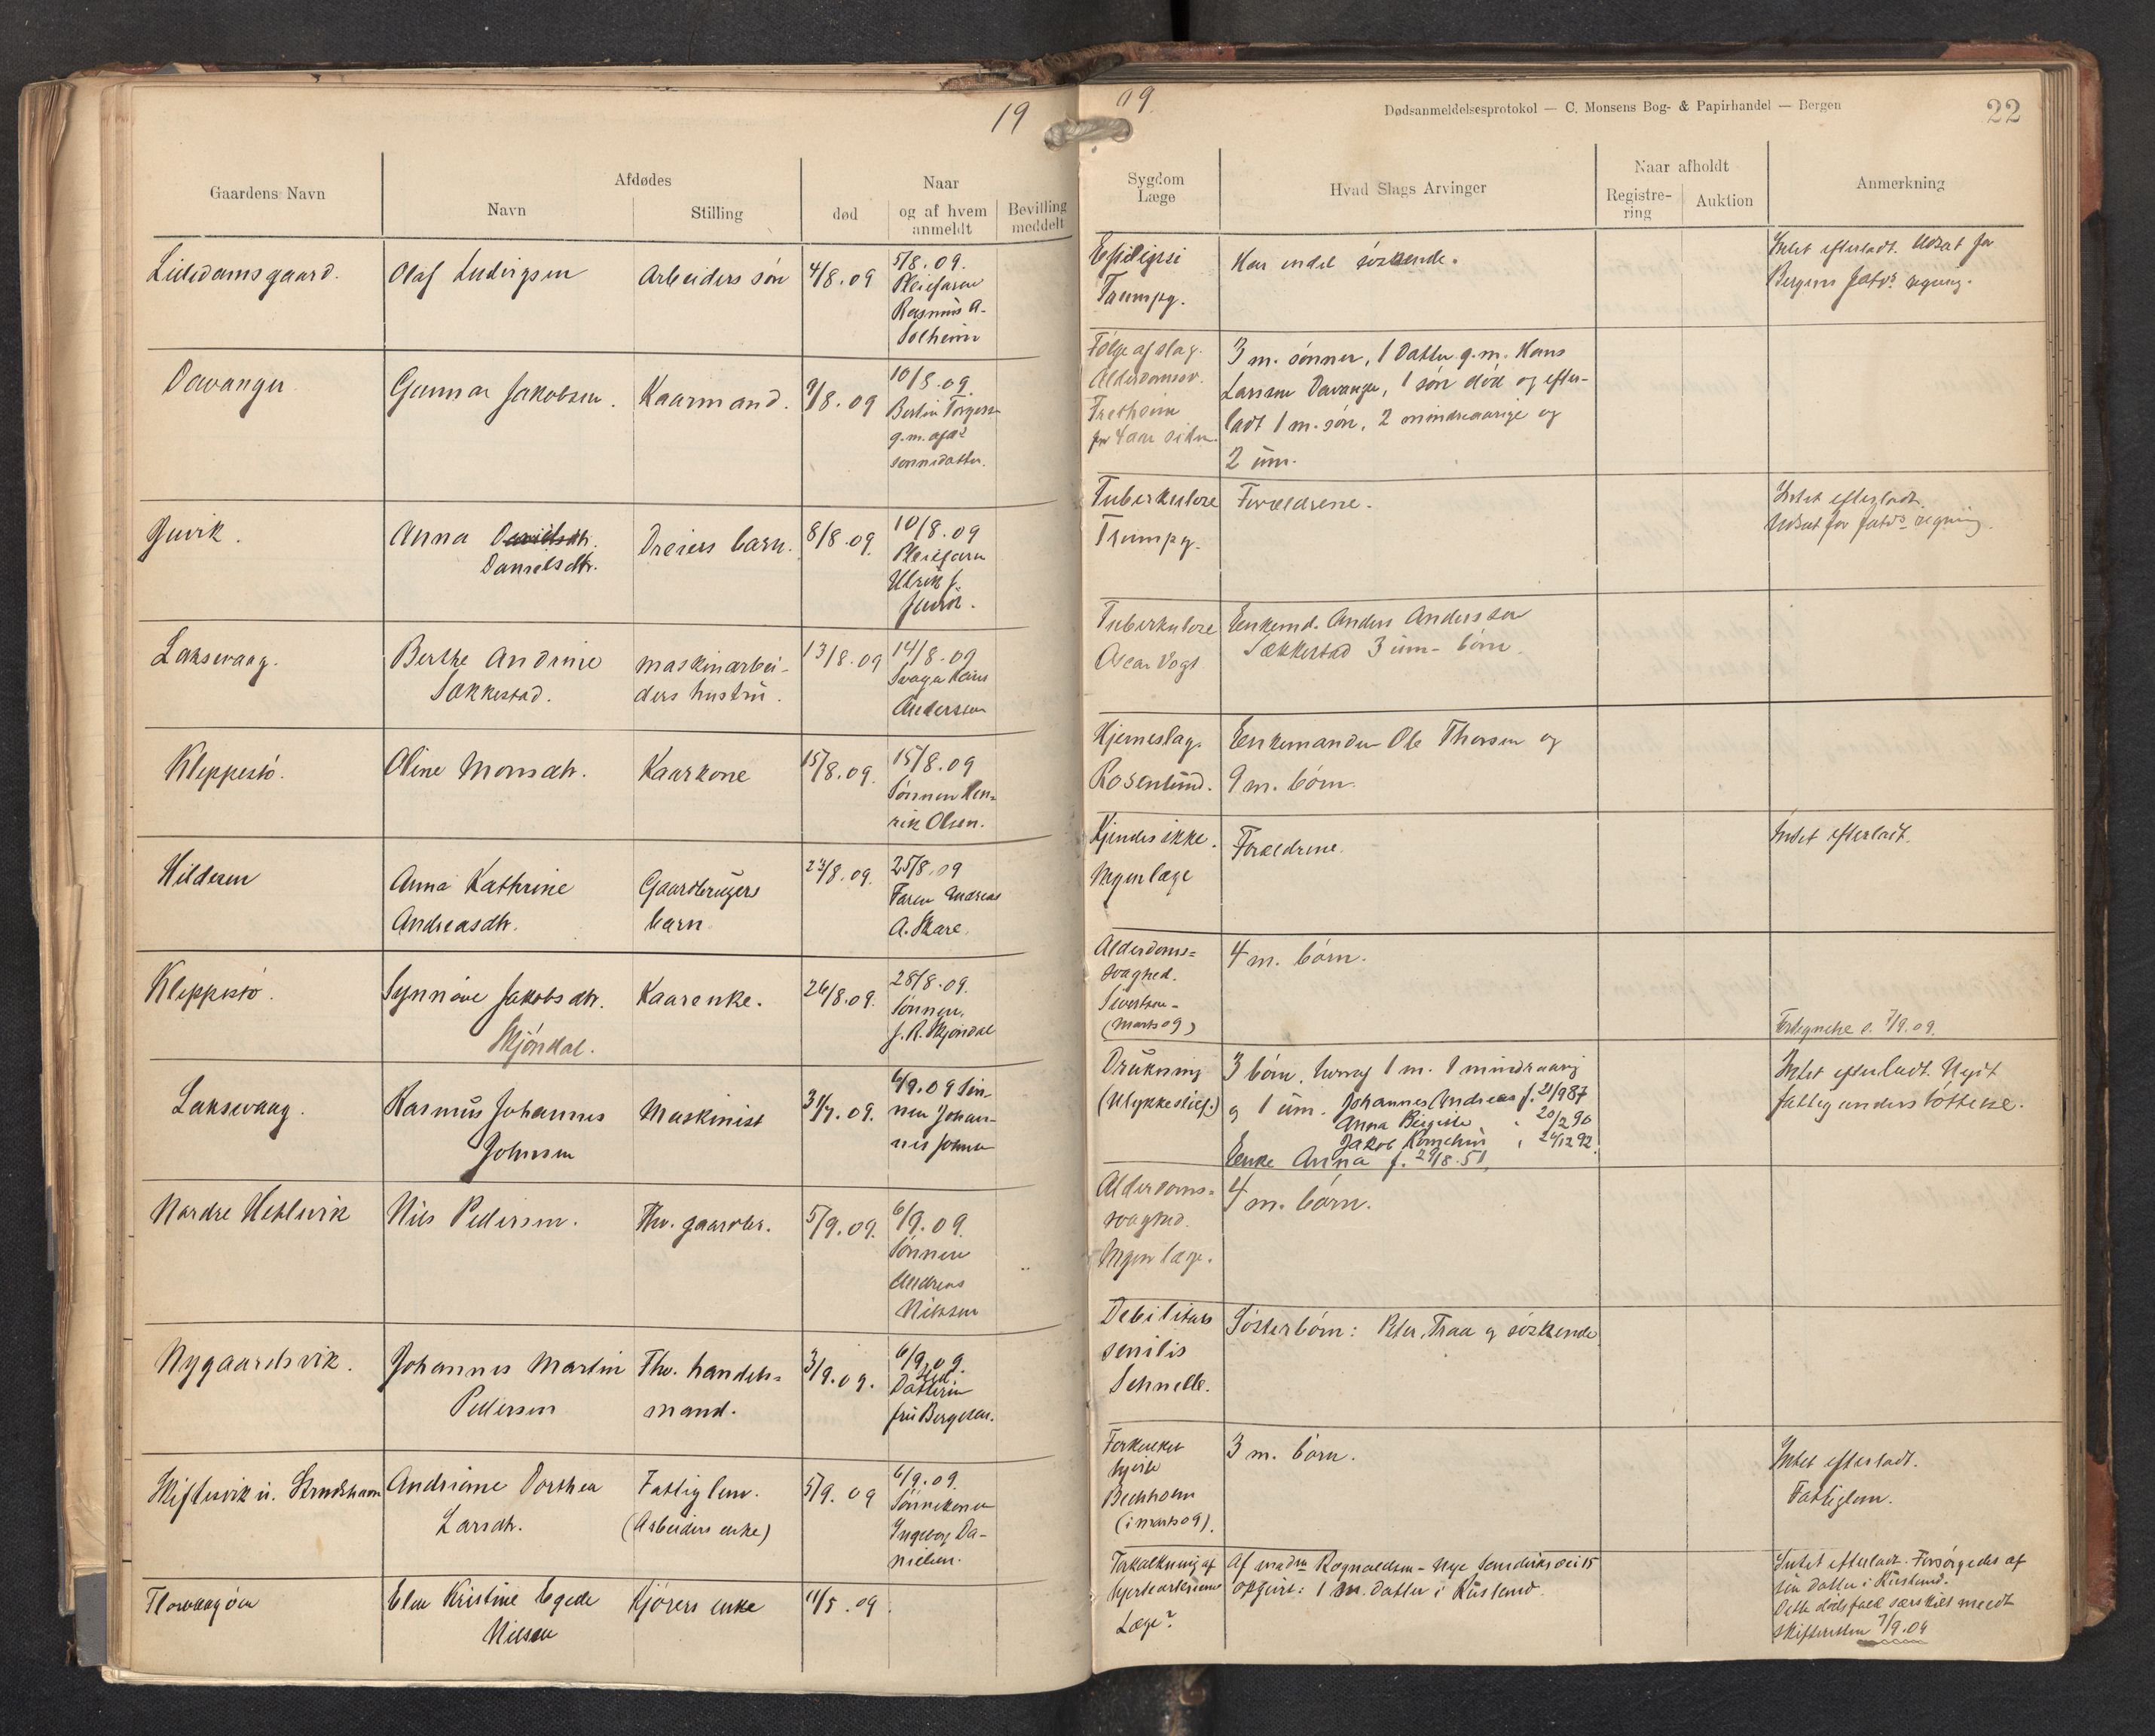 19
09.
Dødsanmeldelsesprotokol — C. Monsens Bog- & Papirhandel — Bergen
22
Gaardens Navn
Afdødes
Navn
Stilling
Naar
død
og af hvem anmeldt
Bevilling meddelt
Sygdom
Læge
Hvad Slags Arvinger
Naar afholdt
Registre-
ring
Auktion
Anmerkning
Olaf Ludvigsen
Arbeiders søn
4/8.09
5/8.09.
Pleiefaren
Rasmus A.
Solheim
Trumpy.
Har endel søskende.
Intet efterladt. Udsat for
Bergens fatv. regning.
Davanger
Gunnar Jakobsen.
Kaarmand.
9/8.09
10/8.09.
g.m. afd.
sønnedatter.
Følge af slag.
Alderdomssv.
Tretheim
for 4 aar siden.
3 m. sønner, 1 datter g.m. Hans
Larsen Davanger, 1 søn død og efter-
ladt 1 m. søn, 2 mindreaarige og
2 um.
Juvik.
Anna
Danielsdtr.
Dreiers barn.
8/8.09.
10/8.09
Pleiefaren
Ulrik J.
Juvik.
Tuberkulose
Trumpy.
Forældrene.
Intet efterladt.
Udsat for fatvs regning.
Laksevaag.
Berthe Andrine
Sækkestad.
maskinarbei-
ders hustru.
13/8.09
14/8.09
Svoger Hans
Andersen
Tuberkulose
Oscar Vogt
Enkemd. Anders Andersen
Sækkestad 3 um. børn.
Kleppestø.
Oline Monsdtr.
Kaarkone
15/8.09.
15/8.09
Sønnen Hen-
rik Olsen.
Hjerneslag.
Rosenlund.
Enkemanden Ole Thorsen og
9 m. børn.
Hilderen
Anna Kathrine
Andreasdtr.
Gaardbrugers
barn
25/8.09
Faren Andreas
A. Skare.
Kjendes ikke.
Ingen læge
Forældrene.
Intet efterladt.
Kleppestø.
Synnøve Jakobsdtr.
Skjøndal.
Kaarenke.
26/8.09.
28/8.09.
Sønnen,
J. R. Skjøndal
Alderdoms-
svaghed.
Sivertsen
(marts 09)
4 m. børn.
7/9.09.
Laksevaag.
Rasmus Johannes
Johnsen
Maskinist
6/9.09 Søn-
nen Johan-
nes Johnsen
Drukning
(Ulykkestilf.)
3 børn, hvoraf 1 m. 1 mindreaarig
og 1 um. Johannes Andreas f. 21/9 87
Anna Birgitte " 20/2 90
Jakob Kornelius " 24/12 92.
Enke Anna f. 29/8.51.
Intet efterladt. Nydt
fattigunderstøttelse.
Nordre Hetlevik
Nils Pedersen.
Fhv. gaardbr.
5/9.09.
6/9.09.
Sønnen
Andreas
Nilssen
Alderdoms-
svaghed.
Ingen læge.
4 m. børn.
Nygaardsvik.
Johannes Martin
Pedersen
Fhv. handels-
mand.
3/9.09.
6/9.09.
Sted-
Datteren
fru Bergesen.
Debilitas
senilis
Schnelle.
Søsterbørn: Peter Traa og søskende
Andriane Dorthea
Larsdtr.
Fattiglem.
(Arbeiders enke)
5/9.09
6/9.09.
Sønnekonen
Ingeborg Da-
nielsen.
hjerte
(i marts 09).
3 m. børn.
Intet efterladt.
Fattiglem.
Florvaagøen
Elen Kristine Egede
Nilsen
Kjørers enke
11/5.09.
Forkalkning af
hjertearterierne
Læge?
opgivet: 1 m. datter i Rusland.
Intet efterladt. Forsørgedes af
sin datter i Rusland.
Dette dødsfald særskilt meldt
skifteretten 7/9.09